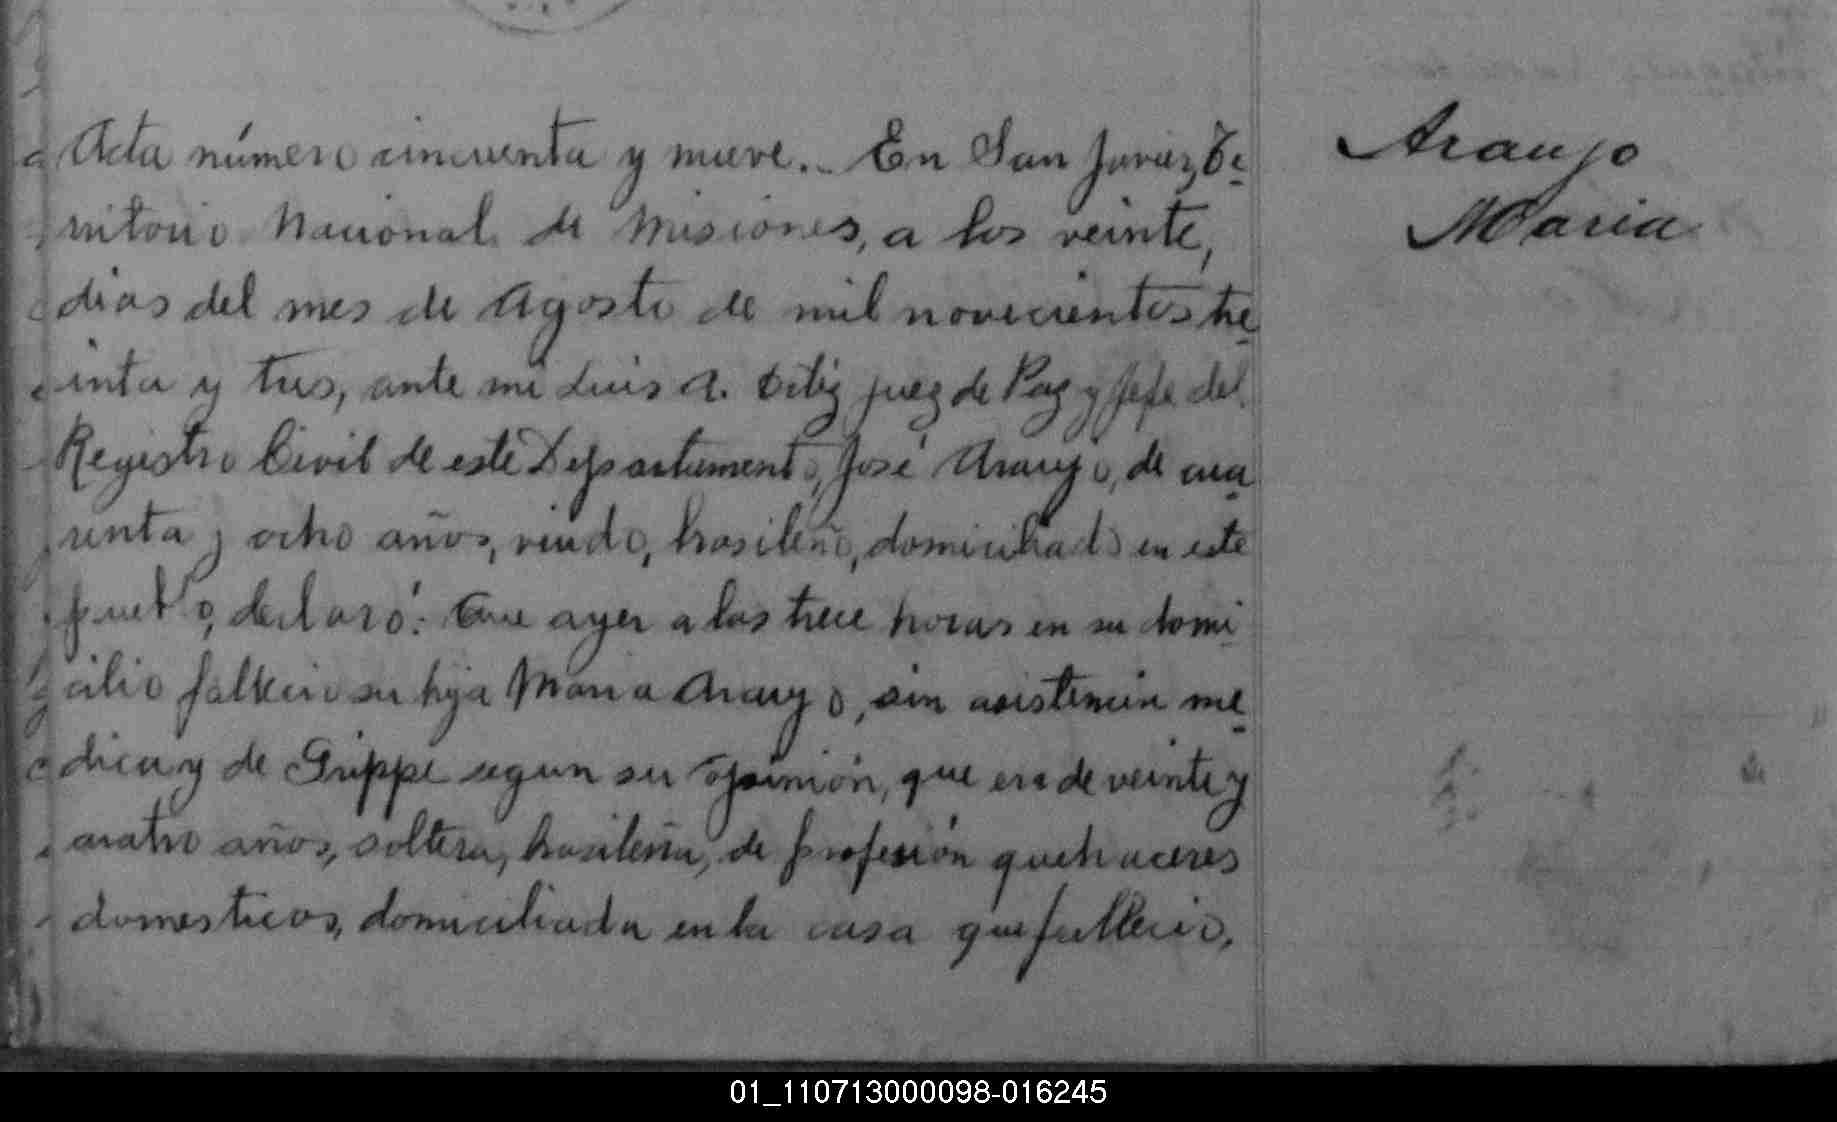 Acta número cincuenta y nueve.- En San Javier, Te-
rritorio Nacional de Misiones, a los veinte,
dias del mes de Agosto de mil novecientos tre-
inta y tres, ante mi Luis A. juez de Paz y Jefe del
Registro Civil de este Departamento, José Araujo, de cua-
renta y ocho años, viudo, brasileño, domiciliado en este
pueblo, declaró: Que ayer a las trece horas en su domi-
cilio fallecio su hija Maria Araujo, sin asistencia me-
dica y de Grippe segun su opinión, que era de veinte y
cuatro años, soltera, brasileña, de profesión quehaceres
domesticos, domiciliada en la casa que fallecio.
Araujo
Maria
01_110713000098-016245